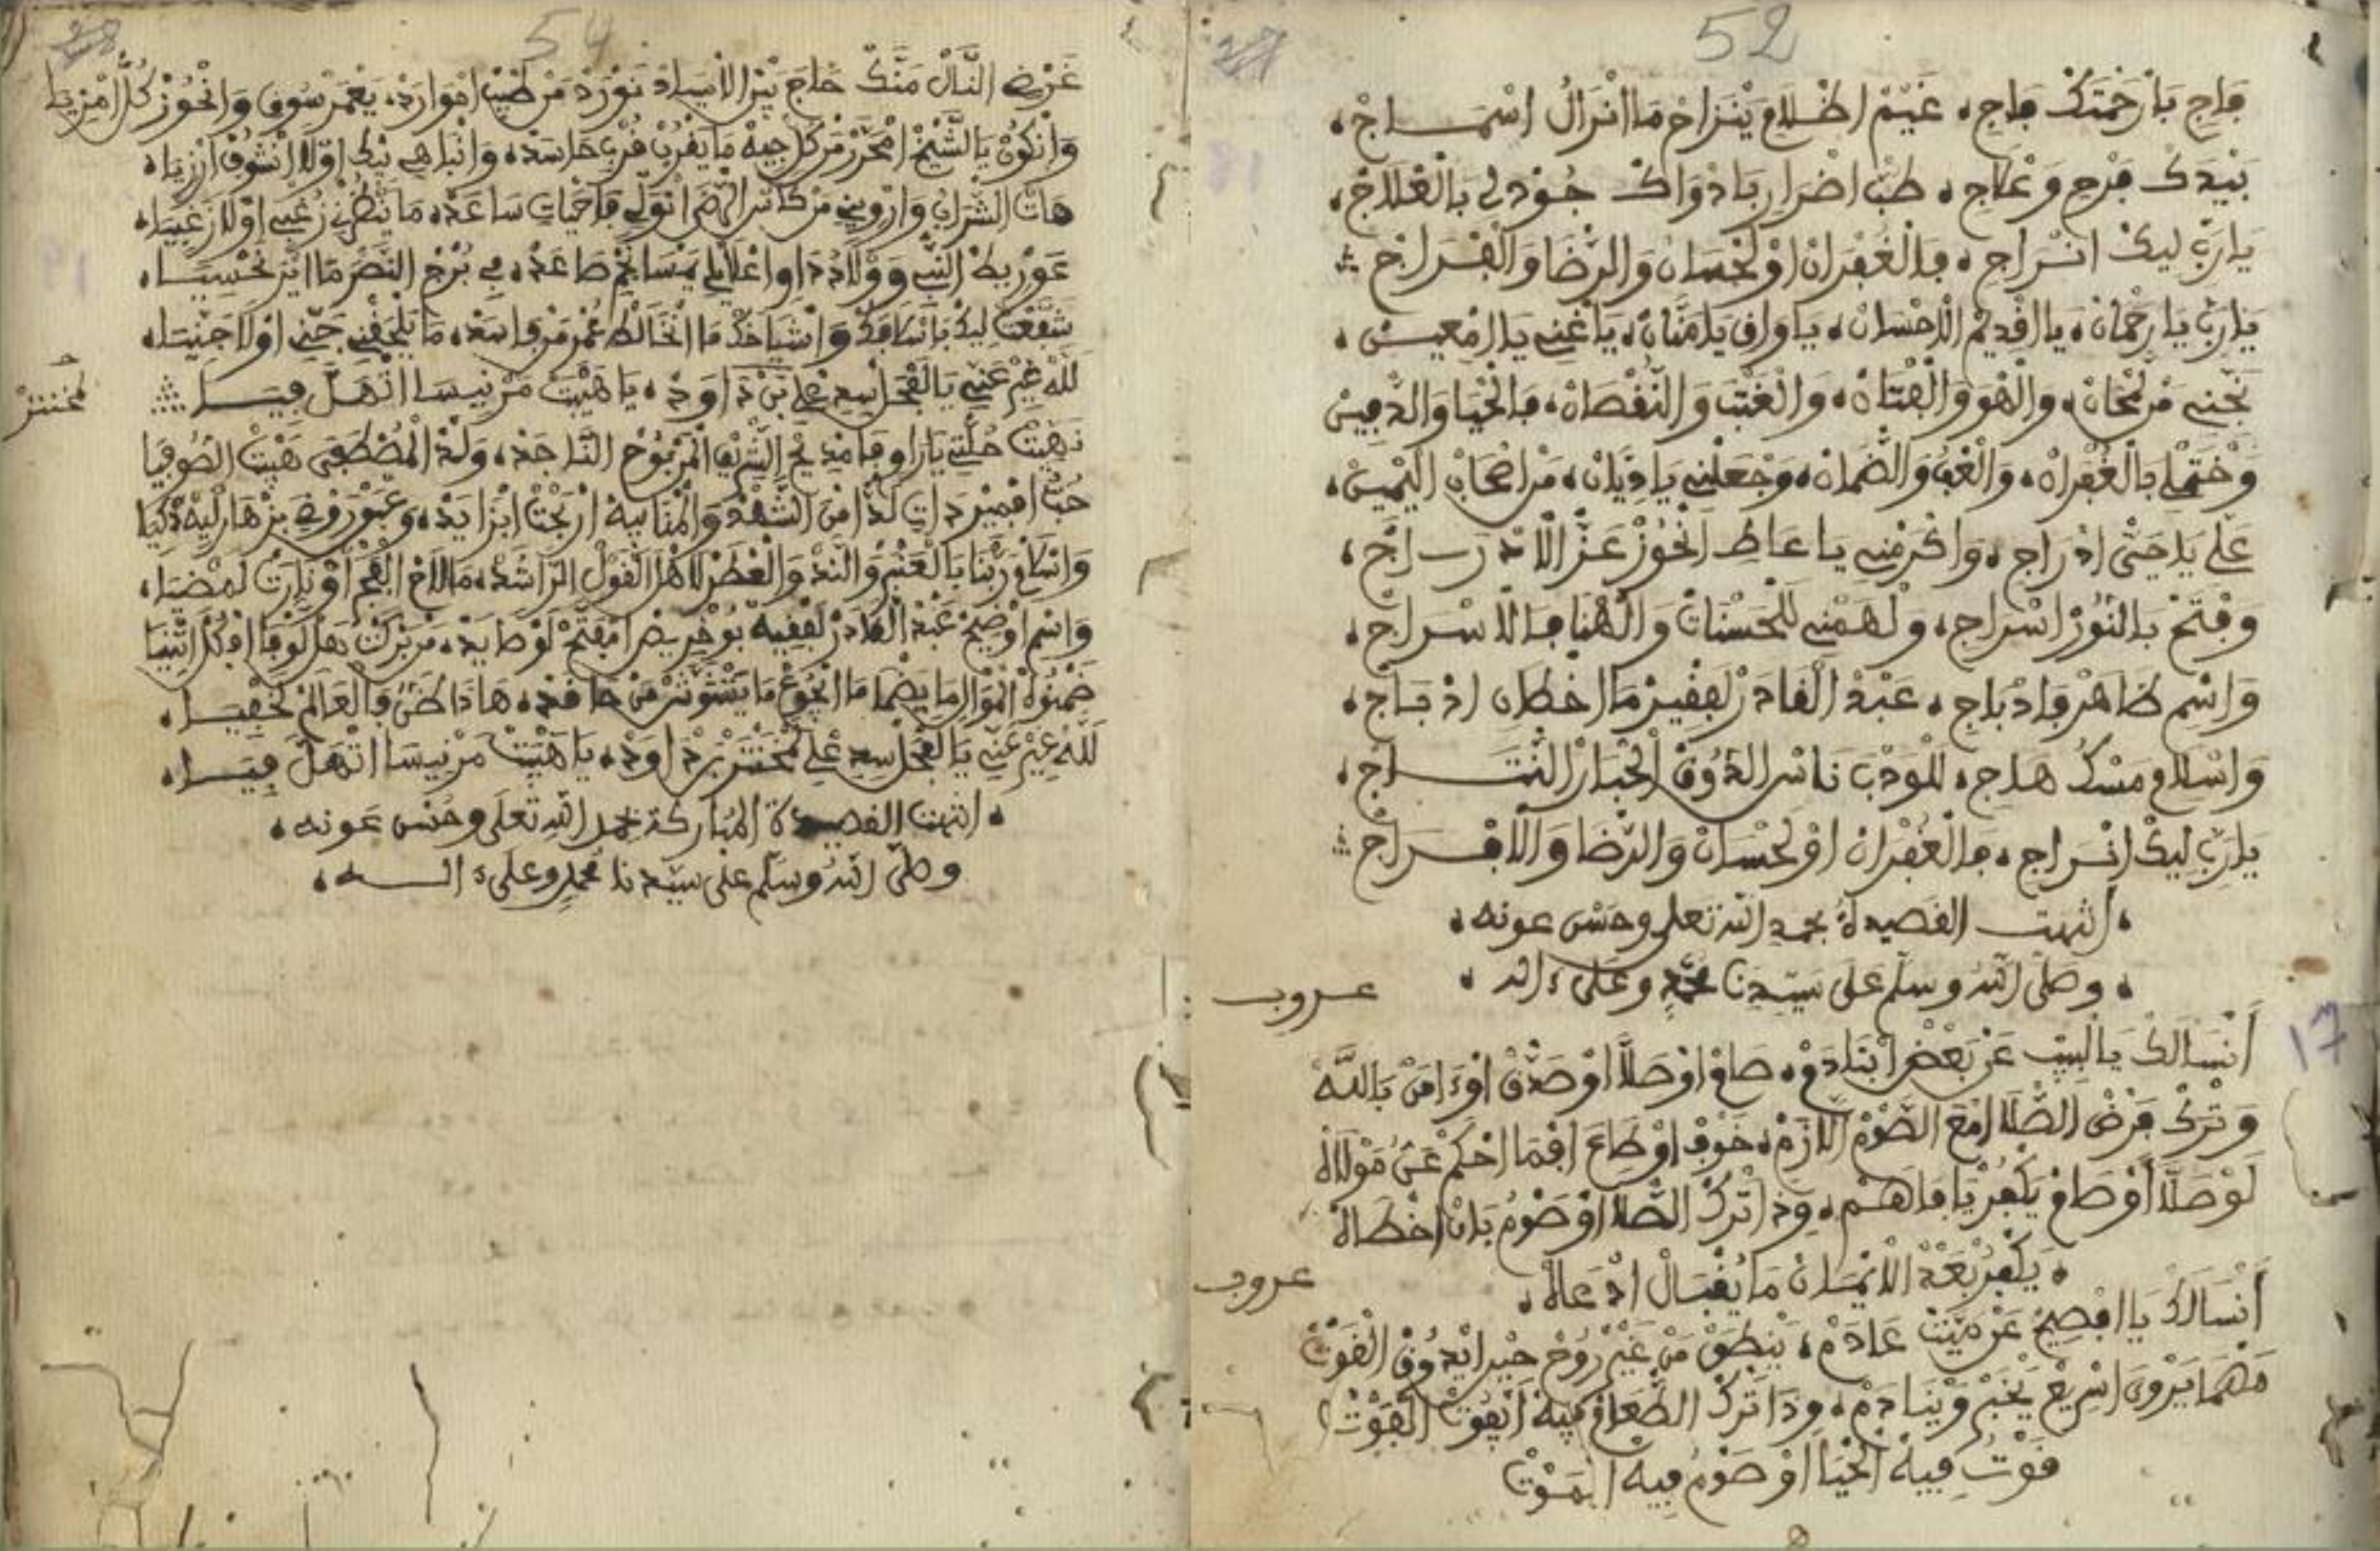 52
27
فاجِ بَارْحَمْتَكْ فاجِ، غَيْمْ اظْلَامْ يَنْزَاحْ مَا انْزَالْ اسْمَــاجْ،
بَيْدَكْ فَرْجِ وَعْلَاجِ، طَبْ اضْرَارِ بَادْوَاكْ جُودْ لِ بَالْعْلَاجْ،
يَارَبِّ لِيكْ انْــرَاجِ، فَالْغُفْرَانْ اوْلَحْسَانْ وَالرّْضَا وَالْفْــرَاجْ
يَارَبِّ يَارَحْمَانْ، يَا الْقْدِيمْ الْاحْسَانْ، يَا وَافِ يَا مَنَّانْ، يَا غْنِي يَا الْمْعِيــنْ،
نَجِّنِي مَنْ لَمْحَانْ، وَالْهُوَ وَالْفْتَانْ، وَالْغْتَبْ وَالنُّقْصَانْ، فَالْحْيَا وَالدْفِينْ
وَخْتَمْلِ بَالْغُفْرَانْ، وَالْعْفُ وَالضّْمَانْ، وَجْعَلْنِي يَا دِيَّانْ، مَنْ اصْحَابْ الْيْمِينْ،
عَلِّي يَا حَيّْ ادْرَاجِ، وَاكْرَمْنِي يَا عَاطِ انْحُوزْ عَزّْ الْادْرَاجْ،
وَفْتَحْ بَالنُّورْ اسْرَاجِ، وَلْهَمْنِي لَلْحَسْنَاتْ وَالْهْنَا فَالْاسْــرَاجْ،
وَاسْمِ ظَاهَرْ فَادْبَاجِ، عَبْدْ الْقَادَرْ لَفْقِيرْ مَا اخْطَانِ ادْبَــاجْ،
وَاسْلَامْ مَسْكْ هَــاجِ، لَلْمَوْدَبْ نَاسْ الذُّوقْ الْحْبَارْ النْتَــاجْ،
يَارَبِّ لِيكْ انْــرَاجِ، فَالْغُفْرَانْ اوْلَحْسَانْ وَالرّْضَا وَالْافْــرَاجْ
، انتهت القصيدةُ بحمدِ اللّه تعلى وحسن عونه ،
، وصلّى اللّه وسلّم على سيّدنَا محمّدٍ وعلى ءاله ،
عــروب
17
أَنْسَالَكْ يَا لْبِيبْ عَنْ بَعْضْ ابْنَادَمْ، صَامْ اوْصَلَّا اوْصَدَّقْ اوْءَامَنْ بَاللَّهْ
وَتْرَكْ فَرْضْ الصّْلَا امْعَ الصُّوْمْ الْلَازَمْ، خَوْفْ اوْطَاعَ افْمَا احْكَمْ عَنُّ مَوْلَاهْ
لَوْ صَلَّا أَوْصَامْ يَكْفُرْ يَا فَاهَــمْ، وِذَا تْرَكْ الصّْلَا اوْصَوْمُ بَانْ اخْطَاهْ
، يَكْفُرْ بَعْدْ الْايْمَــانْ مَا يُقْبَــالْ ادْعَاهْ،
عروب
أَنْسَالَكْ يَا افْصِيحْ عَنْ مَيَّتْ عَادَمْ، يَنْطَقْ مَنْ غَيْرْ رُوحْ حِينْ ايْدُوقْ الْقُوتْ
مَهْمَا يَرْوَى اسْرِيعْ يَخْبَرْ وَيْنَادَمْ، وِذَا تْرَكْ الطّْعَامْ فِيهْ ايْفُوتْ الْفَوْتْ
قَوْتُ فِيهْ الْحْيَا اوْصَوْمُ فِيهْ الْمَــوْتْ
54
28
غَرْضِ النَّالْ مَنَّكْ حَاجَ بَيْن الْاسِيَادْ نَوْرَدْ مَنْ طَيْبْ امْوَارَدْ، يَعْمَرْ سُوقِ وَانْحُوزْ كُلّْ امْزِيَا
وَانْكُونْ يَا الشِّيخْ امْحَرَّزْ مَنْ كُلْ جِيهْ مَا يَقْرُبْ قُرْبِ حَاسَدْ، وَانْبَاهِي بِكْ اوْلَا انْشُوفْ ارْزِيَا،
هَاتْ الشّْرَابْ وَارْوِينِي مَنْ كَاسْ الرّْضَى انْوَلِّي فَاحْيَاتِ سَاعَدْ، مَا يَنْظَرْنِي زُغْبِي اوْلَا زَغْبِيَا،
عَوْرِيطْ النّْبِي وَوْلَادُ دَاوِ اعْلَايْلِي يَمْسَا نَجْمِ صَاعَدْ، فِي بُرْجْ النَّصْرْ مَا ايْرَ نَحْسِيَــا،
شَفَّعْتْ لِيكْ بَانْسَافَكْ وَانْشِيَاخَكْ مَا انْخَالَطْ عُمْرِ مَنْ فَاسَدْ، مَا يَلْحَقْنِي جَنِّي اوْلَا جَنِّيَا،
لَلَّهْ غِيرْ عَنِّي يَا الْفْحَلْ سِيدِي عْلِي بَنْ دَاوَدْ، يَا هَيْبْتْ مَرْنِيسَا اتْهَلَّا فِيَــا
لمحنتر
نهيْتْ حُلّْتِي يَا رَاوِ فَامْدِيحْ الشّْرِيفْ الْمَرْبُوحْ النَّاجَدْ، وَلْدْ الْمُصْطَفَى هَيْبْتْ الصُّوفِيَا
حُبُّ افْضْمِيرْ دَاتِ لَذَّ امْنْ الشَّهْدْ وَالْمْنَا بِيهْ ارْبَحْتْ ابْزَايَدْ، وعْبَوْ رَوْضِي بزْهَارْ لِيهْ دْكِيَا
وَاسْلَامْ رَبْنَا بَالْعَنْبَرْ وَالنَّدْ وَالْعْطَرْ لَاهْلْ الْقَوْلْ الرَّاشَدْ، مَا لَاحْ الْفْجَرْ اوْبَارَتْ لَمْضِيَا،
وَاسْمِ اوْضِيحْ عَبْدْ الْقَادَرْ لَفْقِيهْ بُوخْرِيصْ امْفَتَّحْ لَوْصَايَدْ، مَنْ بَرْكْتْ هَلْ لَوْفَا افْكُلْ اثْنِيَا
ضَمْنُوهْ الْمْوَالِ مَا يَضْمَا مَا انْجُوعْ مَا يَتْشَوَّشْ مَنْ حَافَدْ، هَادَا ظَنِّي فَالْعَالَمْ لَخْفِيَــا،
لَلَّهْ غِيرْ عَنِّي يَا الْفْحَلْ سِيدِي عْلِي لَمْحَنْتَرْ بَنْ دَاوَدْ، يَا هَيْبْتْ مَرْنِيسَا اتْهَلَّا فِيَــا،
، انتهت القصيدة المُبَاركة بحمد اللّه تعَلى وحُسْن عَونه ،
وصلّى اللّه وسلّم على سيّدنا محمدٍ وعلى ءالــه ،